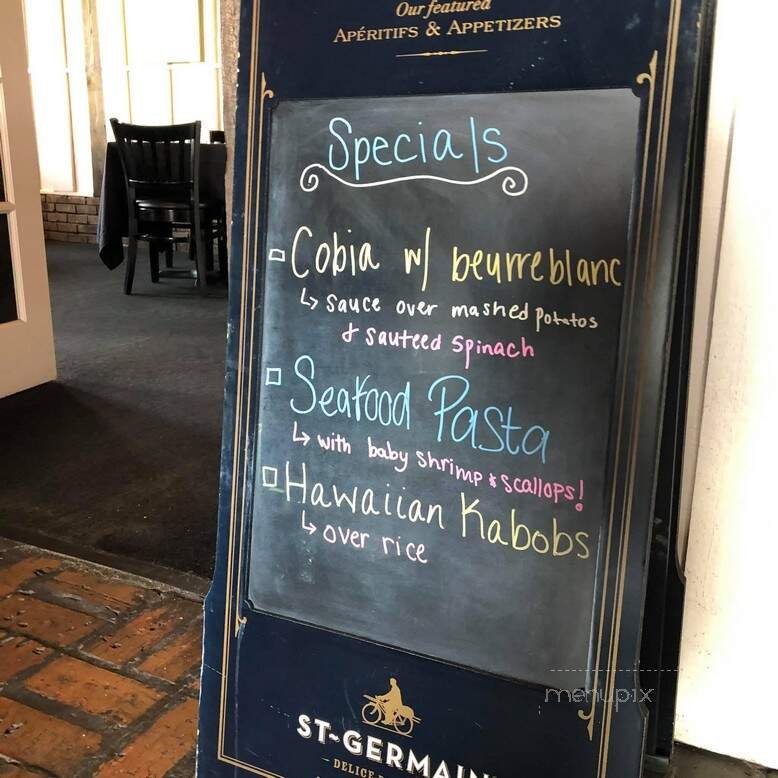 Our featured
APÉRITIFS & APPETIZERS
Specials
Cobia w/ beurreblanc
↳ sauce over mashed potatos
& sauteed spinach
Seafood Pasta
↳ with baby shrimp & scallops!
Hawaiian Kabobs
↳ over rice
menupix
ST-GERMAIN